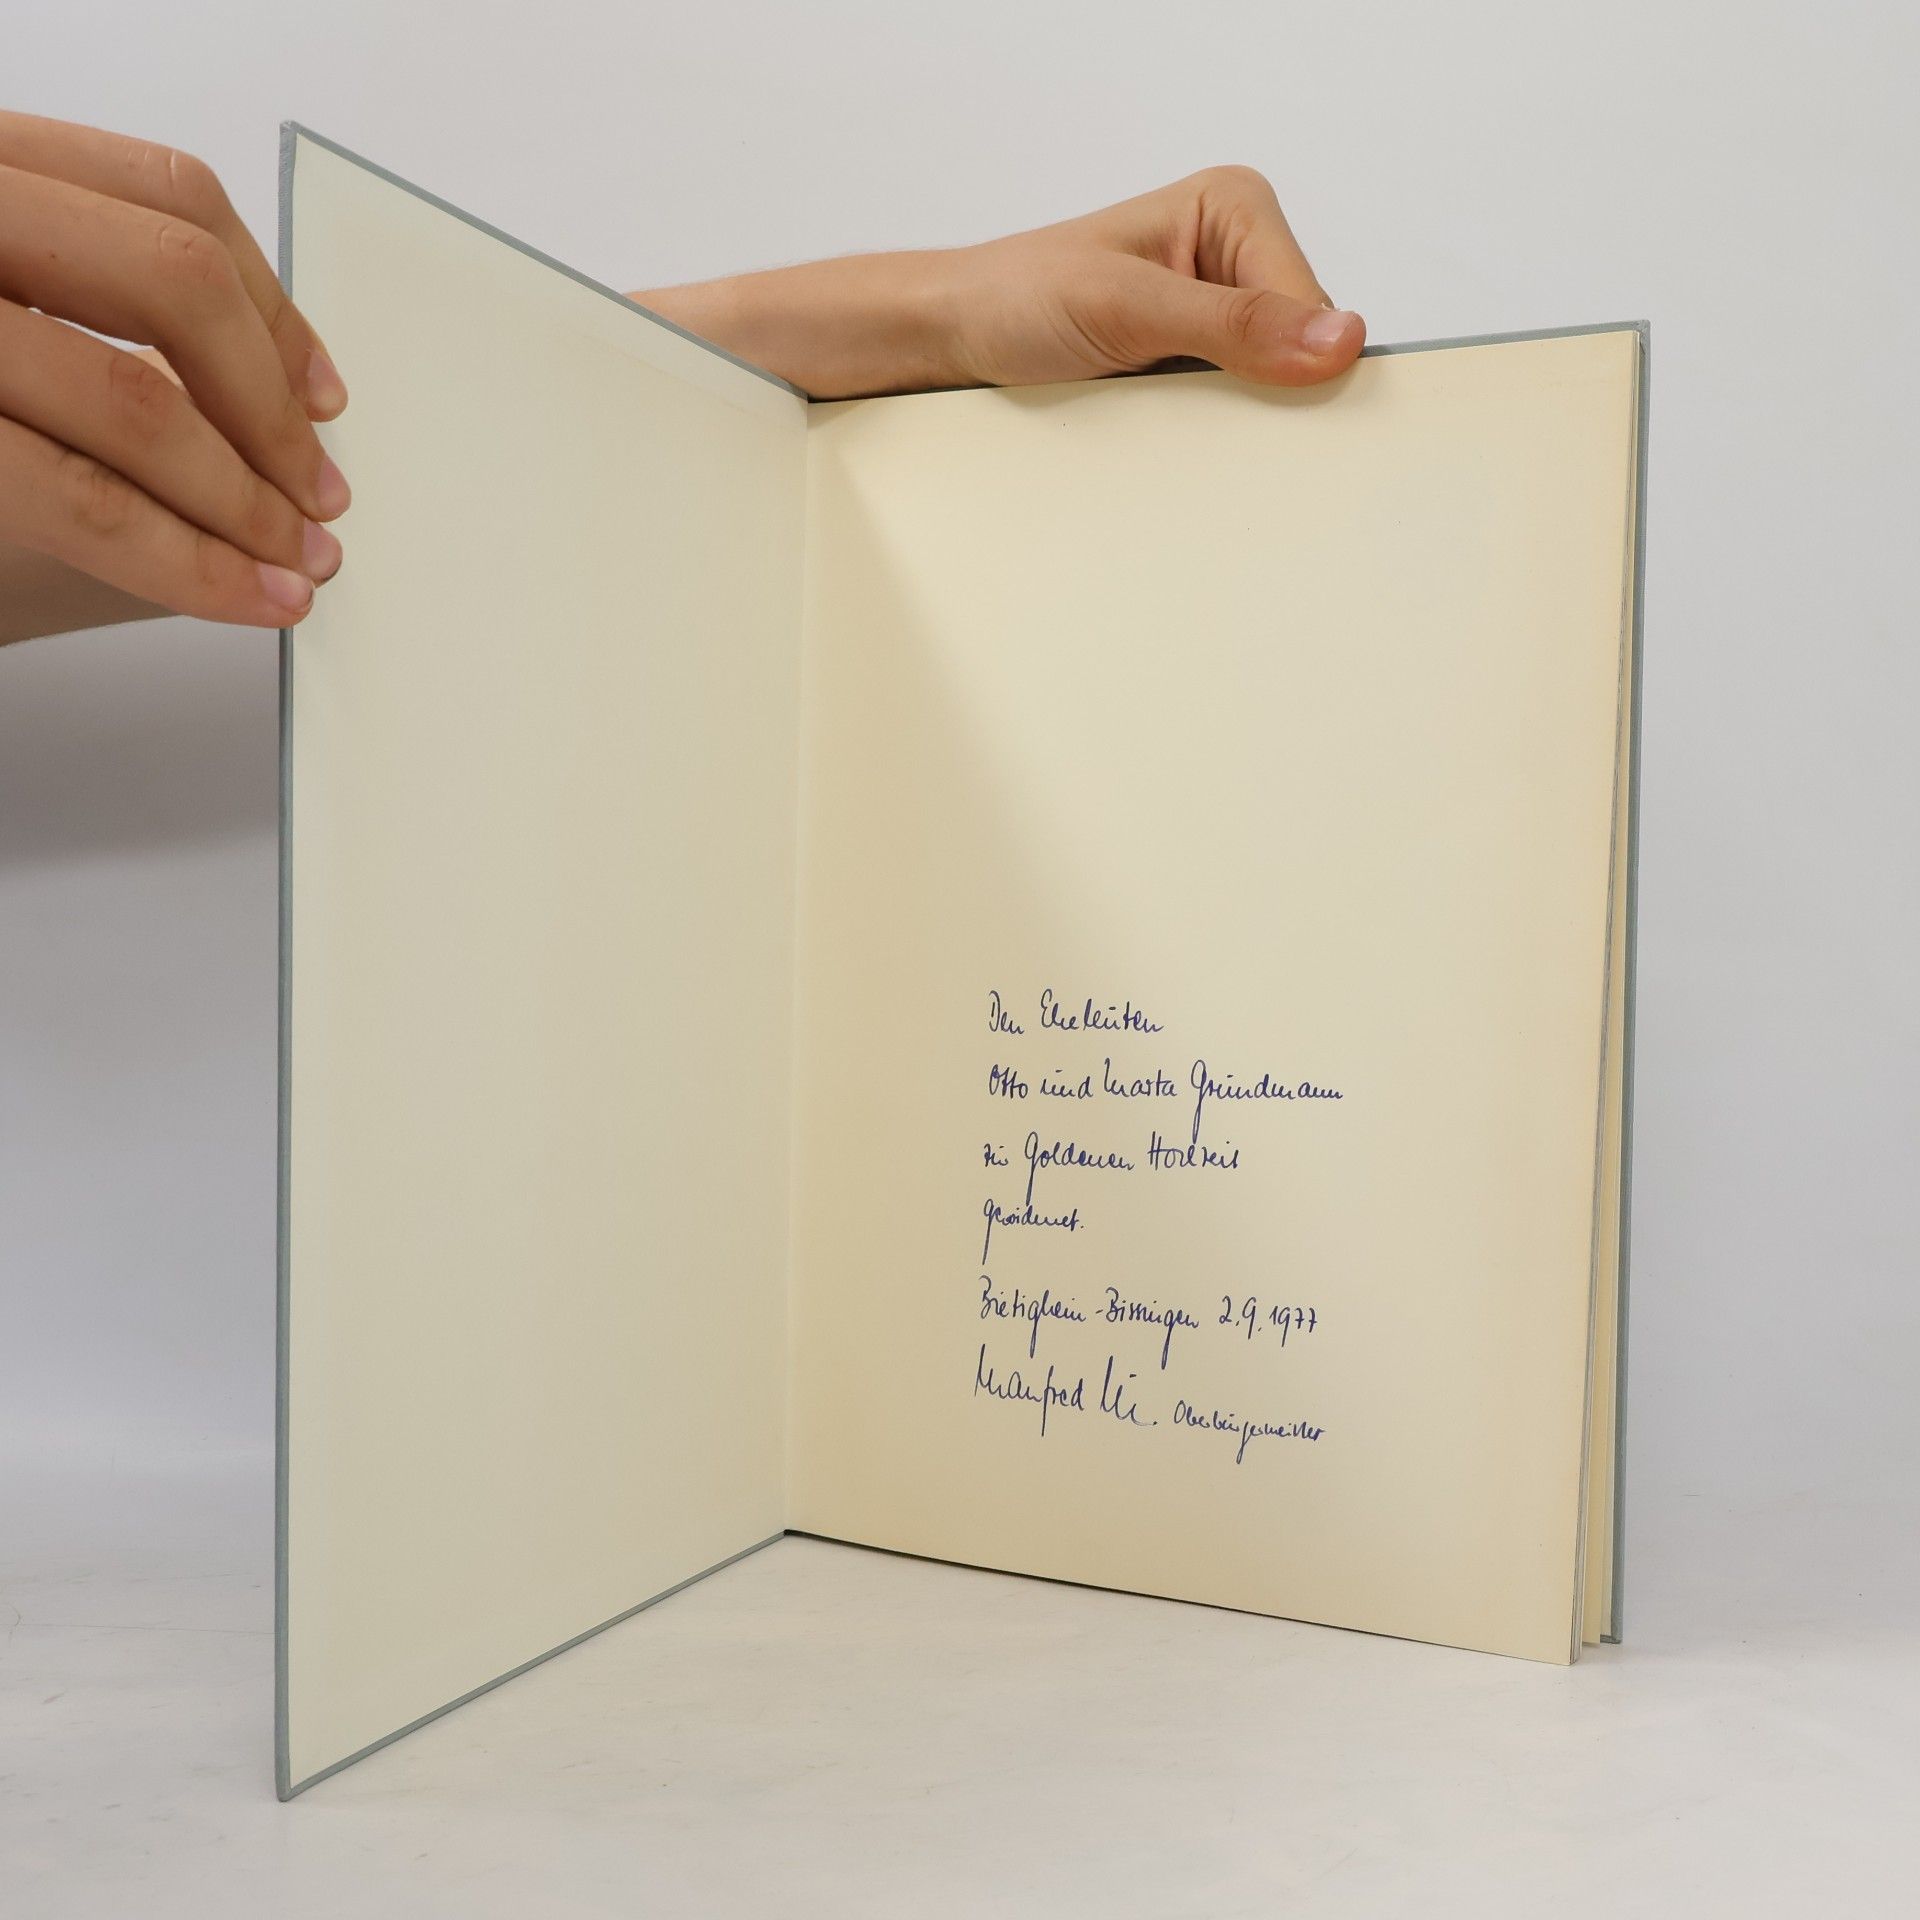 Den Eheleuten
Otto und Marta Grundmann
zur Goldenen Hochzeit
gewidmet.
Bietigheim-Bissingen 2.9.1977
Manfred Oberbürgermeister